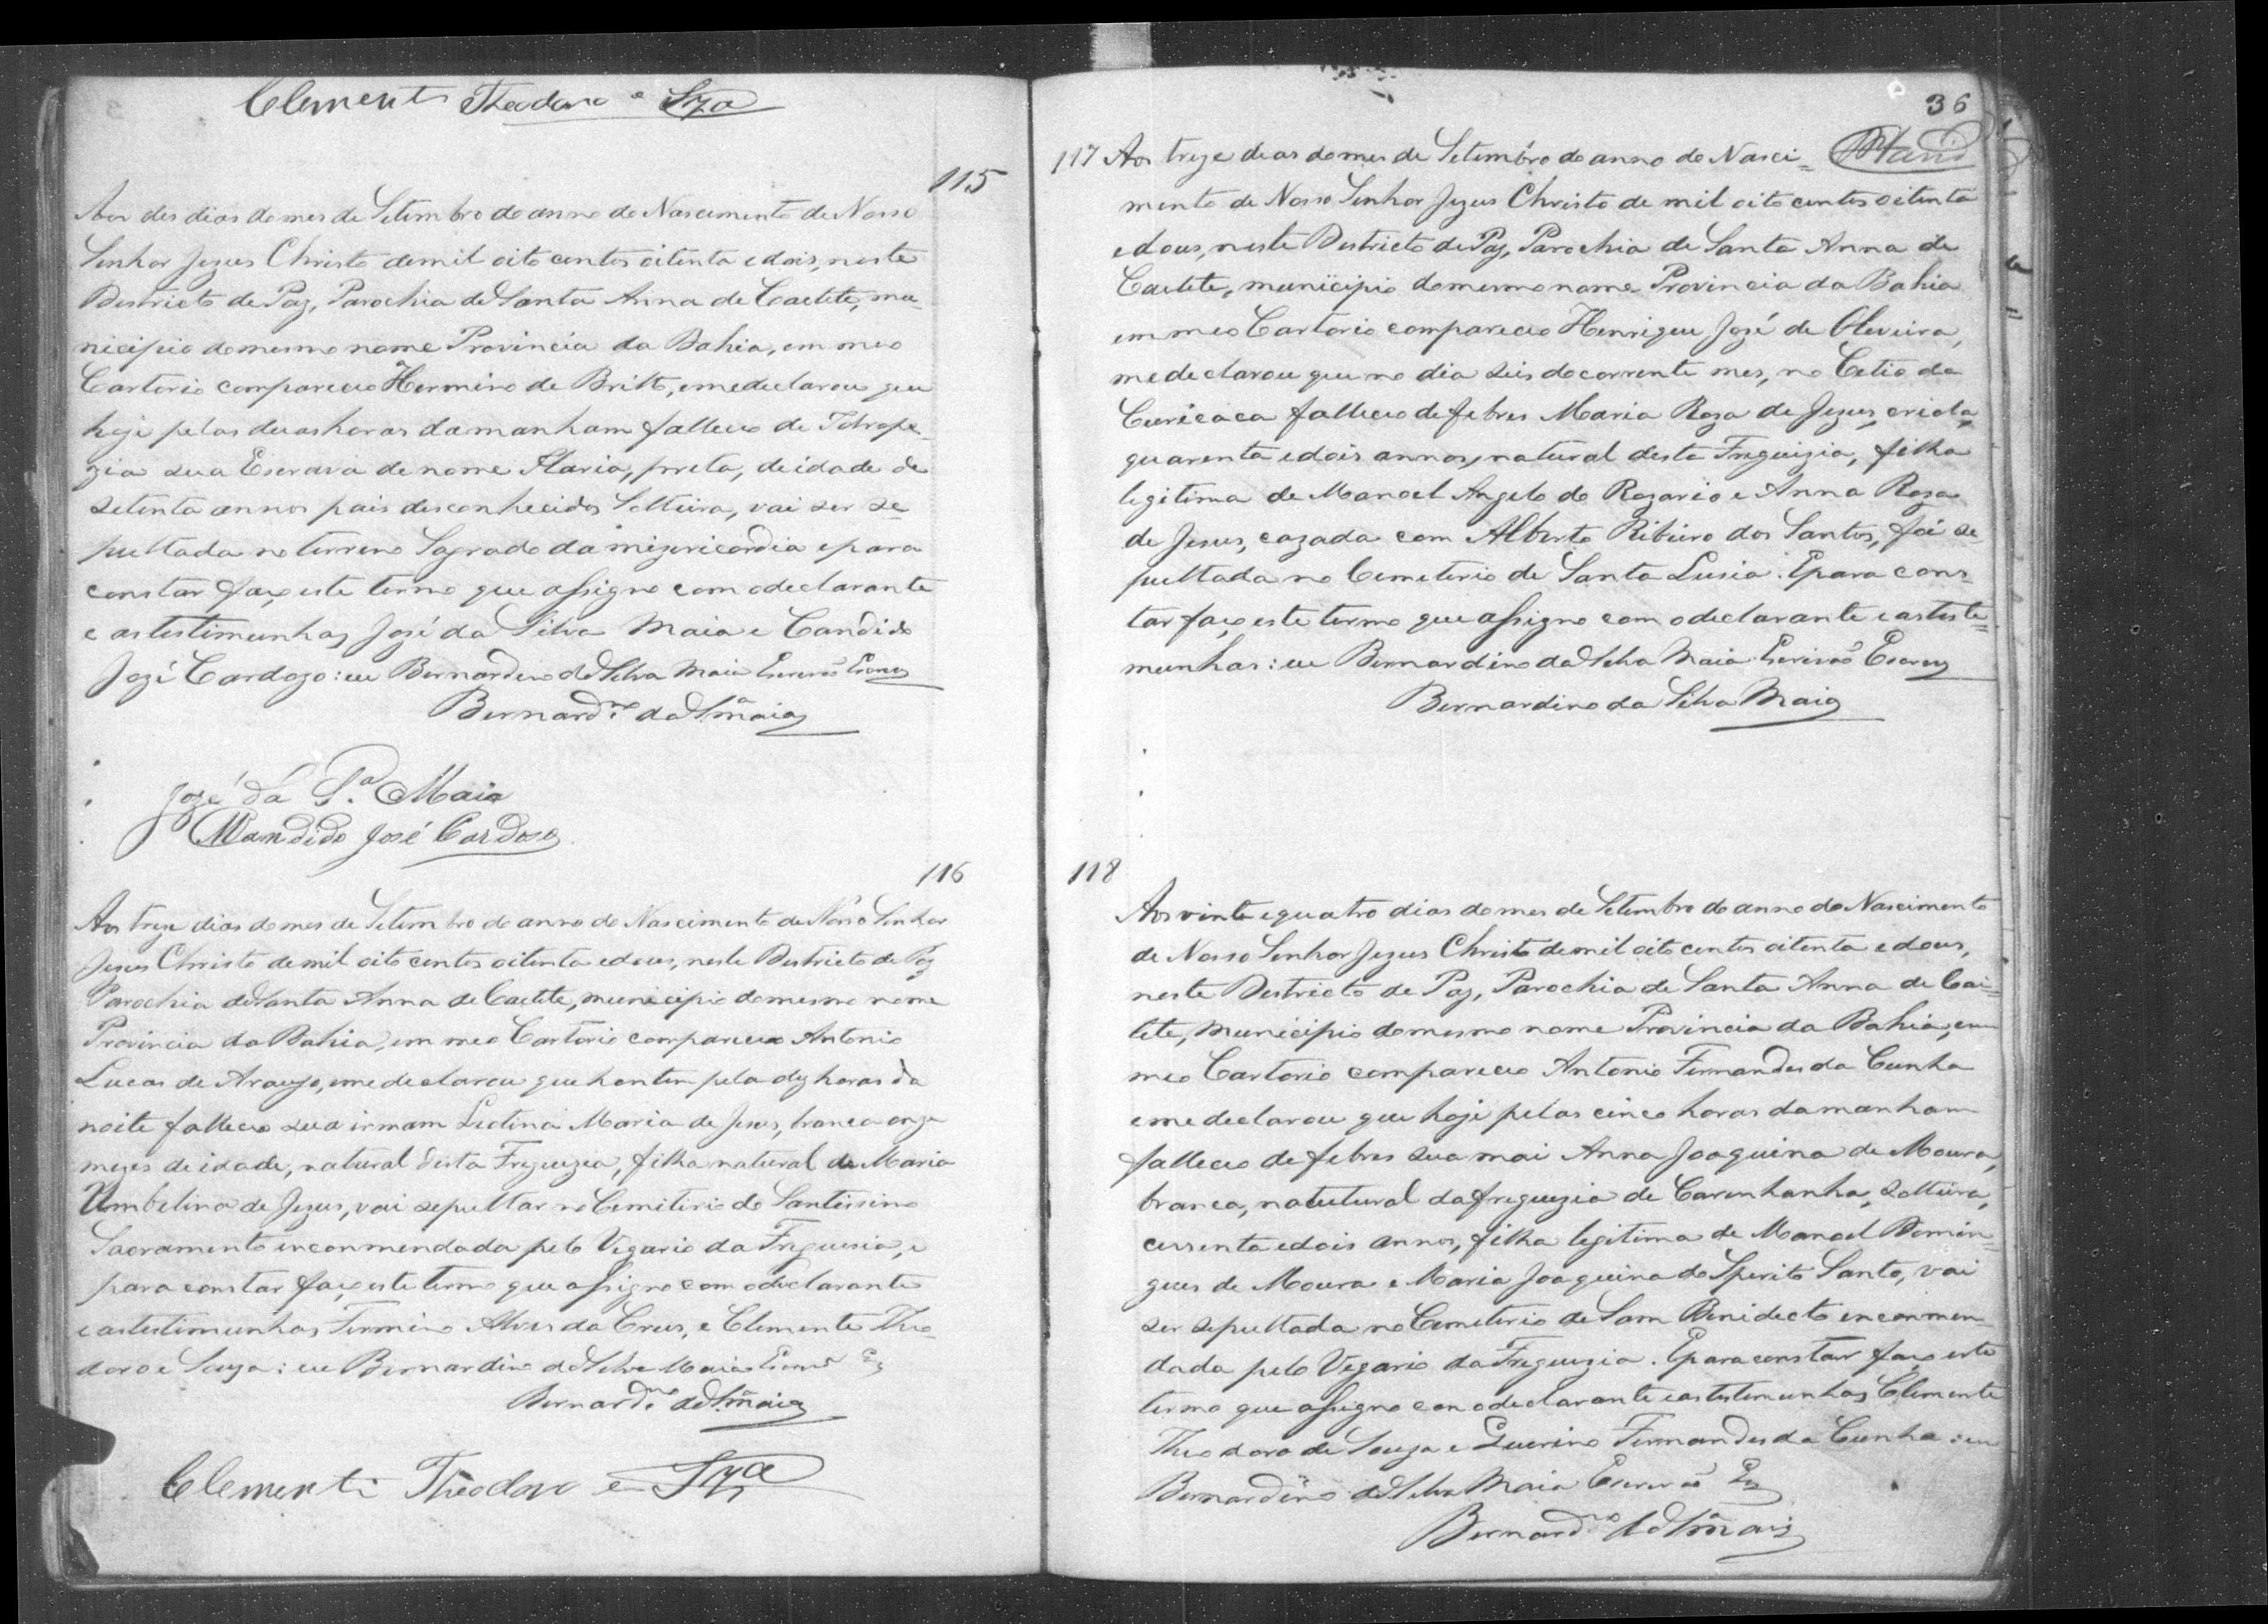 Clemente Theodoro e Sza
115
Aos des dias do mes de Setimbro do anno do Nascimento de Nosso
Senhor Jezus Christo de mil oito centos oitenta e dois, neste
Districto de Paz, Parochia de Santa Anna de Caetete, mu
nicipio do mesmo nome Provincia da Bahia, em meo
Cartorio compareceo Hermino de Britto, e me declarou que
hoje pelas duas horas da manham falleceo de Idrope-
zia sua Escrava de nome Maria, preta, de idade de
setenta annos pais desconhecidos Solteira, vai ser se
pultada no terreno Sagrado da mizericordia e para
constar faço este termo que assigno com o declarante
e as testimunhas José da Silva Maia e Candido
José Cardozo: eu Bernardino da Silva Maia Escrivão Escrevy
Bernardno da Sa Maia
José da Sa Maia
Candido José Cardoso
116
Aos treze dias do mes de Setimbro do anno do Nascimento de Nosso Senhor
Jezus Christo de mil oito centos oitenta e dous, neste Districto de Paz
Parochia de Santa Anna de Caetete, municipio do mesmo nome
Provincia da Bahia, em meo Cartorio compareceo Antonio
Lucas de Araujo, e me declarou que hontem pela dez horas da
noite falleceo sua irmam Maria de Jesus, branca onze
mezes de idade, natural desta Freguezia, filha natural de Maria
Umbelina de Jezus, vai sepultar no Cemiterio do Santissimo
Sacramento enconmendada pelo Vigario da Freguesia, e
para constar faço este termo que assigno com o declarante
e as testimunhas Firmino Alves da Crus, e Clemente Theo
doro e Souza: eu Bernardino da Silva Maia Escrivão
Bernardno da Sa Maia
Clemente Theodoro e Sza
36
117 Aos treze dias do mes de Setimbro do anno do Nasci=
mento de Nosso Senhor Jezus Christo de mil oito centos oitenta
e dous, neste Districto de Paz, Parochia de Santa Anna de
Caetete, municipio do mesmo nome Provincia da Bahia
em meo Cartorio compareceo Henrique José de Oliveira,
me declarou que no dia seis do corrente mes, no Citio da
Curicaca falleceo de febres Maria Roza de Jezus, criola,
quarenta e dois annos, natural desta Freguizia, filha
legitima de Manoel Angelo do Rozario e Anna Roza
de Jesus, cazada com Alberto Ribeiro dos Santos, foi se
pultada no Cemeterio de Santa Lusia. E para cons-
tar faço este termo que assigno com o declarante e as teste=
munhas: eu Bernardino da Silva Maia Escrivão Escrevy
Bernardino da Silva Maia
118
Aos vinte e quatro dias do mes de Setembro do anno do Nascimento
de Nosso Senhor Jezus Christo de mil oito centos oitenta e dous,
neste Districto de Paz, Parochia de Santa Anna de Cai=
tete, municipio do mesmo nome Provincia da Bahia, em
meo Cartorio compareceo Antonio Fernandes da Cunha
e me declarou que hoje pelas cinco horas da manham
falleceo de febres sua mai Anna Joaquina de Moura,
branca, natutural da freguezia de Carinhanha, solteira,
cessenta e dois annos, filha legitima de Manoel Domin=
gues de Moura e Maria Joaquina do Sperito Santo, vai
ser sepultada no Cemeterio de Sam Benidecto enconmen
dada pelo Vigario da Freguezia. E para constar faço este
termo que assigno con o declarante e as testimunhas Clemente
Theodoro de Souza e Querino Fernandes da Cunha: eu
Bernardino da Silva Maia Escrivão
Bernardno da Sa Maia